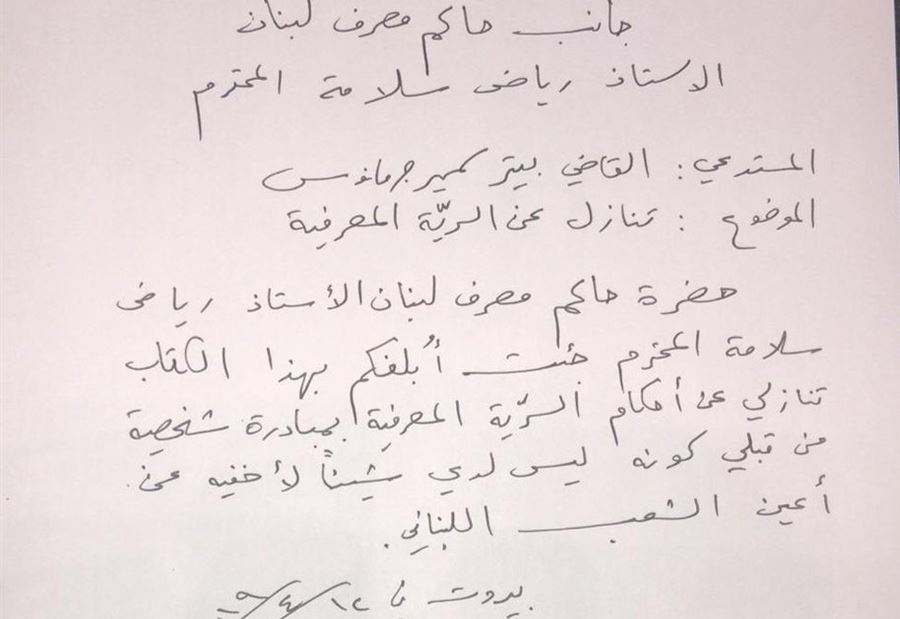 جانب حاكم مصرف لبنان
الاستاذ رياض سلامة المحترم
المستدعي: القاضي بيتر سمير جرمانوس
الموضوع: تنازل عن السريّة المصرفية
حضرة حاكم مصرف لبنان الأستاذ رياض
سلامة المحترم جئت أُبلغكم بهذا الكتاب
تنازلي عن أحكام السريّة المصرفية بمبادرة شخصية
من قبلي كونه ليس لدي شيئاً لأخفيه عن
أعين الشعب اللبناني.
بيروت في ١٢/٤/